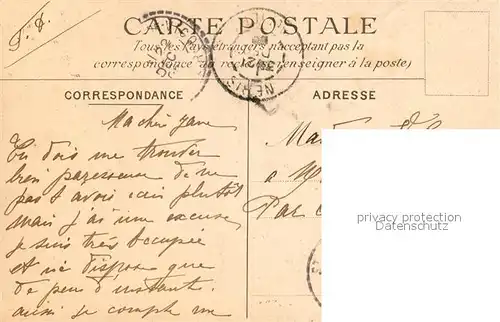 T. S.
CARTE POSTALE
Tous les Pays étrangers n'acceptant pas la
correspondance au recto (Se renseigner à la poste)
CORRESPONDANCE
ADRESSE
NERIS
Ma chère Jane
Tu dois me trouver
bien paresseuse de ne
pas t'avoir écris plutôt
mais j'ai une excuse,
je suis très occupée
et ne dispose que
de peu d'instants.
aussi je compte
Mad
à M
Par
privacy protection
Datenschutz